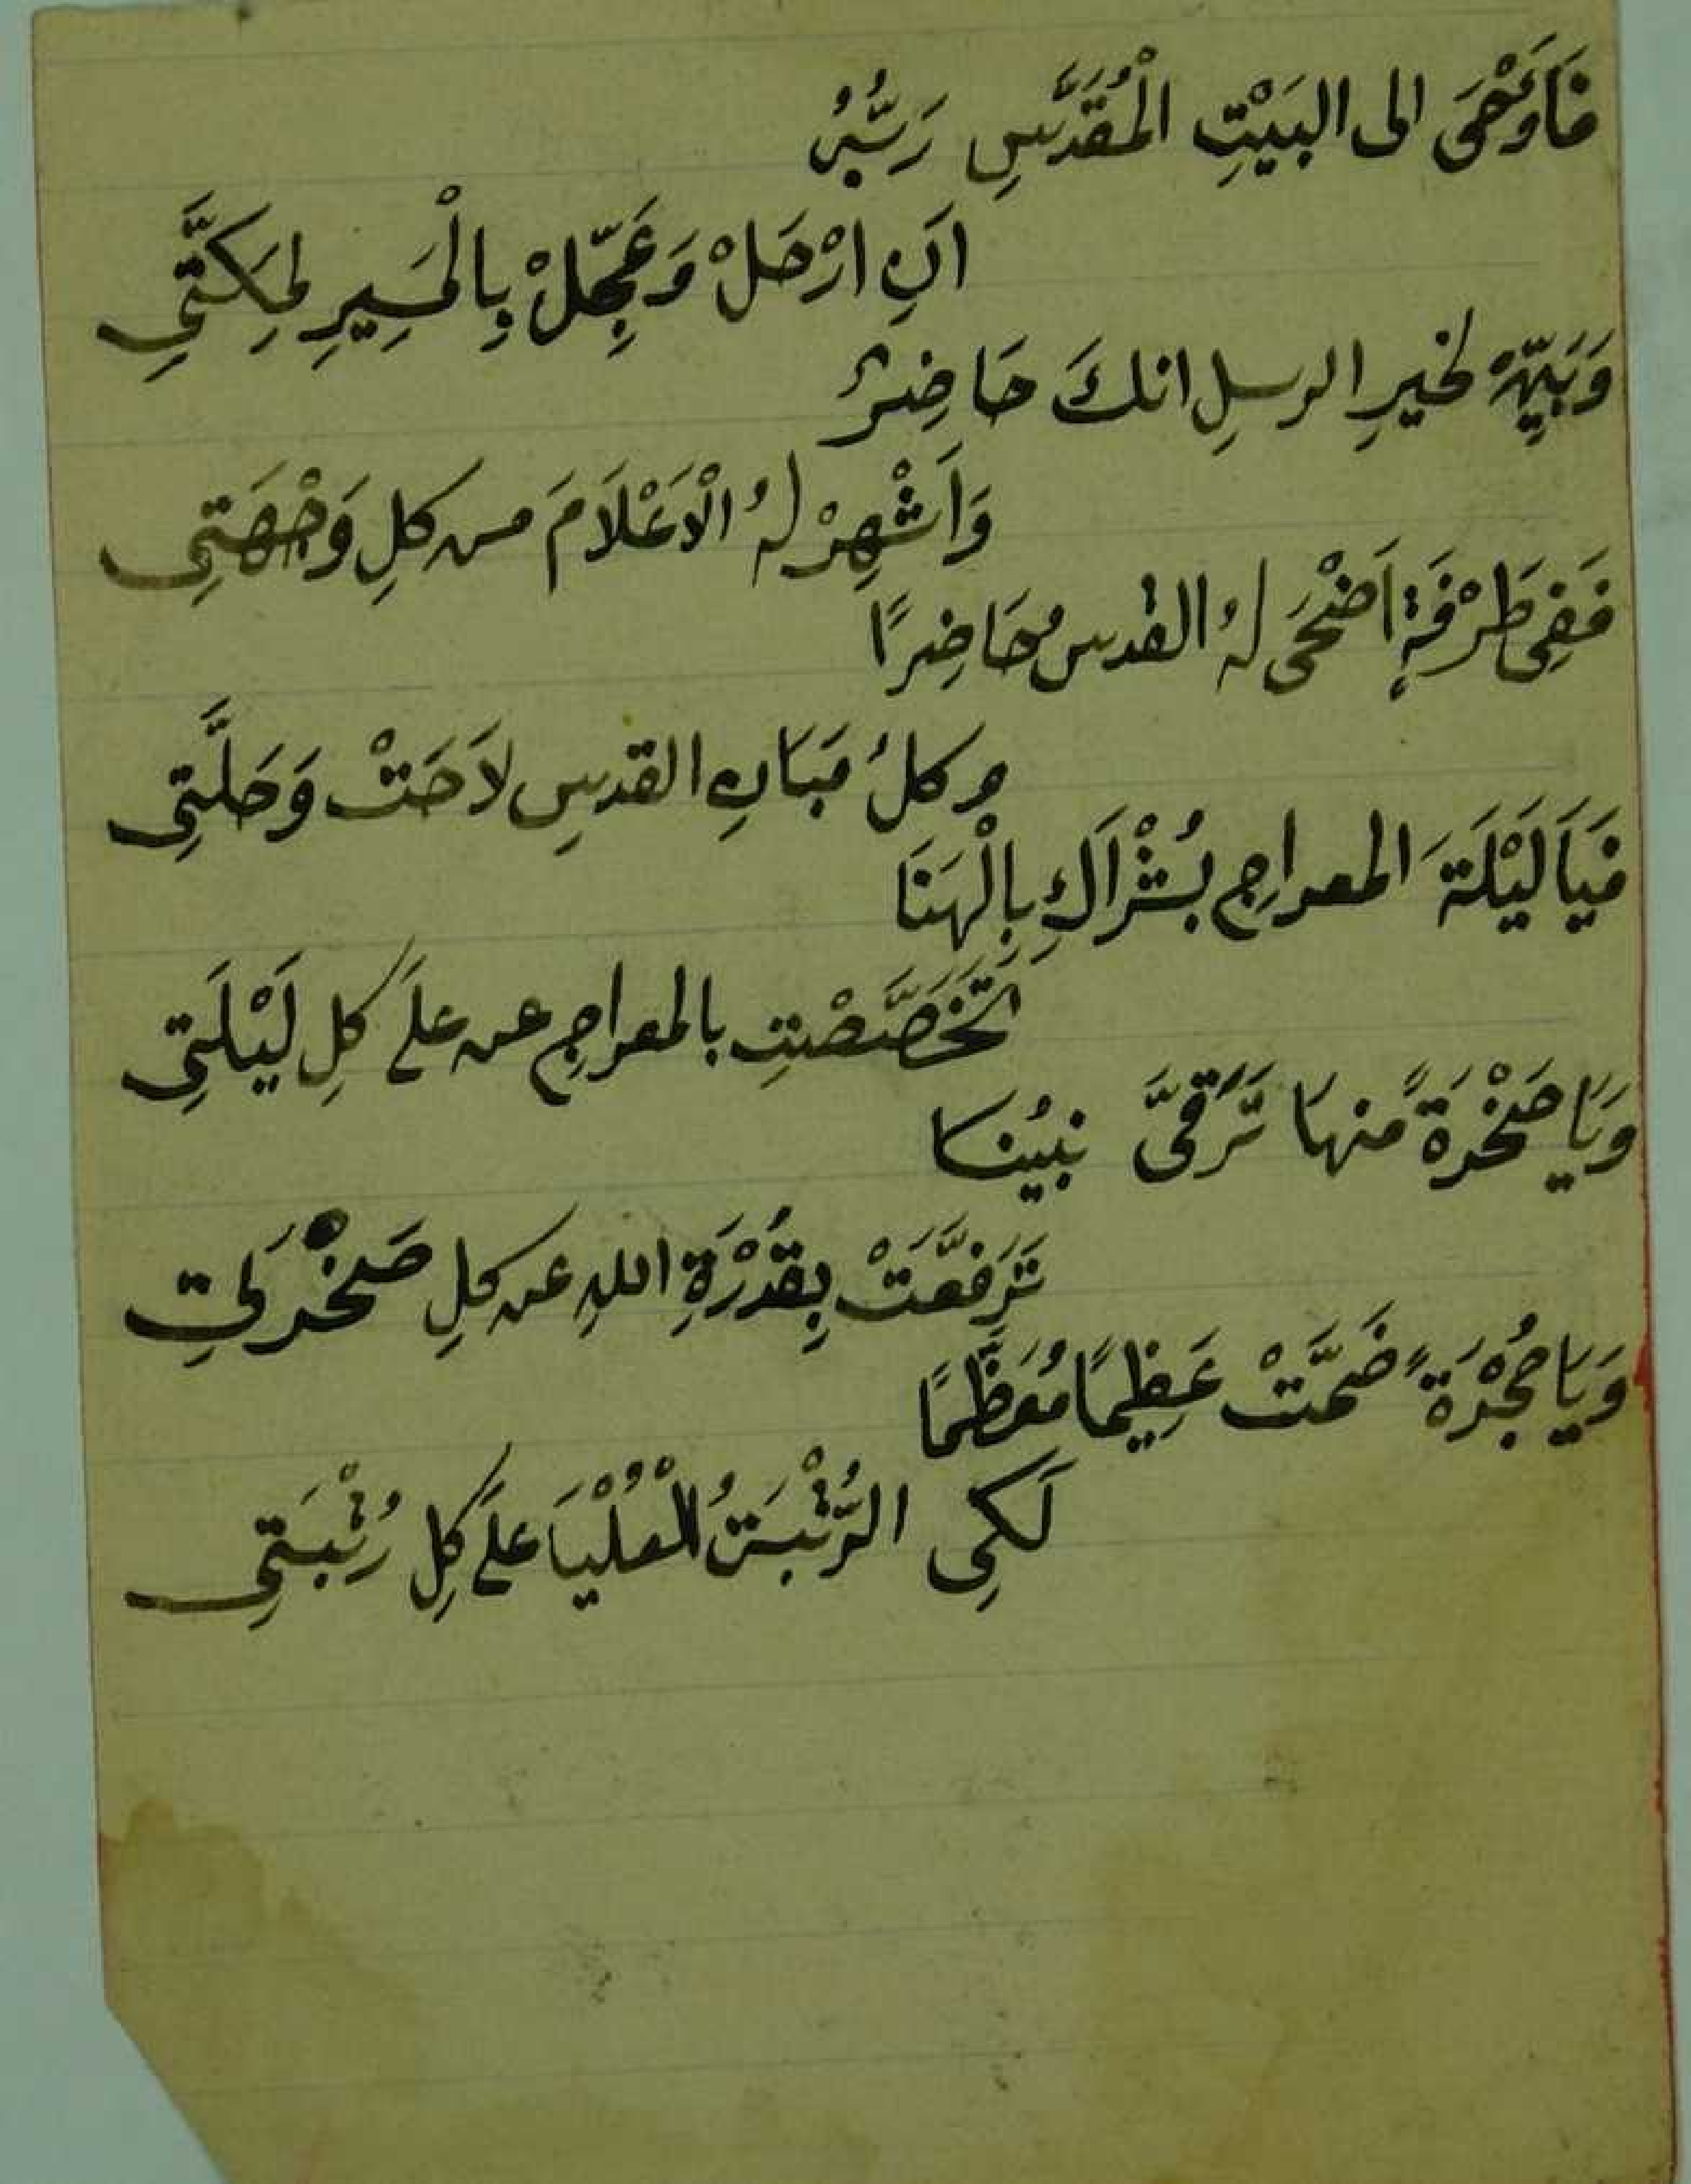 فَأَوْحَى الى البَيْتِ الْمُقَدَّسِ رَبُّهُ
اَنِ ارْحَلْ وَعَجِّلْ بِالْمَسِيرِ لِمَكَّتِى
وَبَيِّنْ لخيرِ الرسلِ انكَ حَاضِرٌ
وَاَشْهِرْ لهُ الْاَعْلَامَ من كلِ وَجْهَتِى
فَفِى طَرْفَةٍ اَضْحَى لهُ القدس حَاضِرًا
وكلُ مَبَانِ القدسِ لاَحَتْ وَحَلَّتِى
فَيَا لَيْلَةَ المعراجِ بُشْرَاكِ بِالْهَنَا
تَخَصَّصْتِ بالمعراجِ عن عَلَى كلِ لَيْلَتِى
وَيَا صَخْرَةً منهَا تَرَقَّى نبيُنا
تَرَفَّعَتْ بِقُدْرَةِ اللهِ عن كلِ صَخْرَتِ
وَيَا حُجْرَةً ضَمَّتْ عَظِيمًا مُعَظَّمًا
لَكِى الرُّتْبَةُ الْعُلْيَا عَلَى كلِ رُتْبَتِى